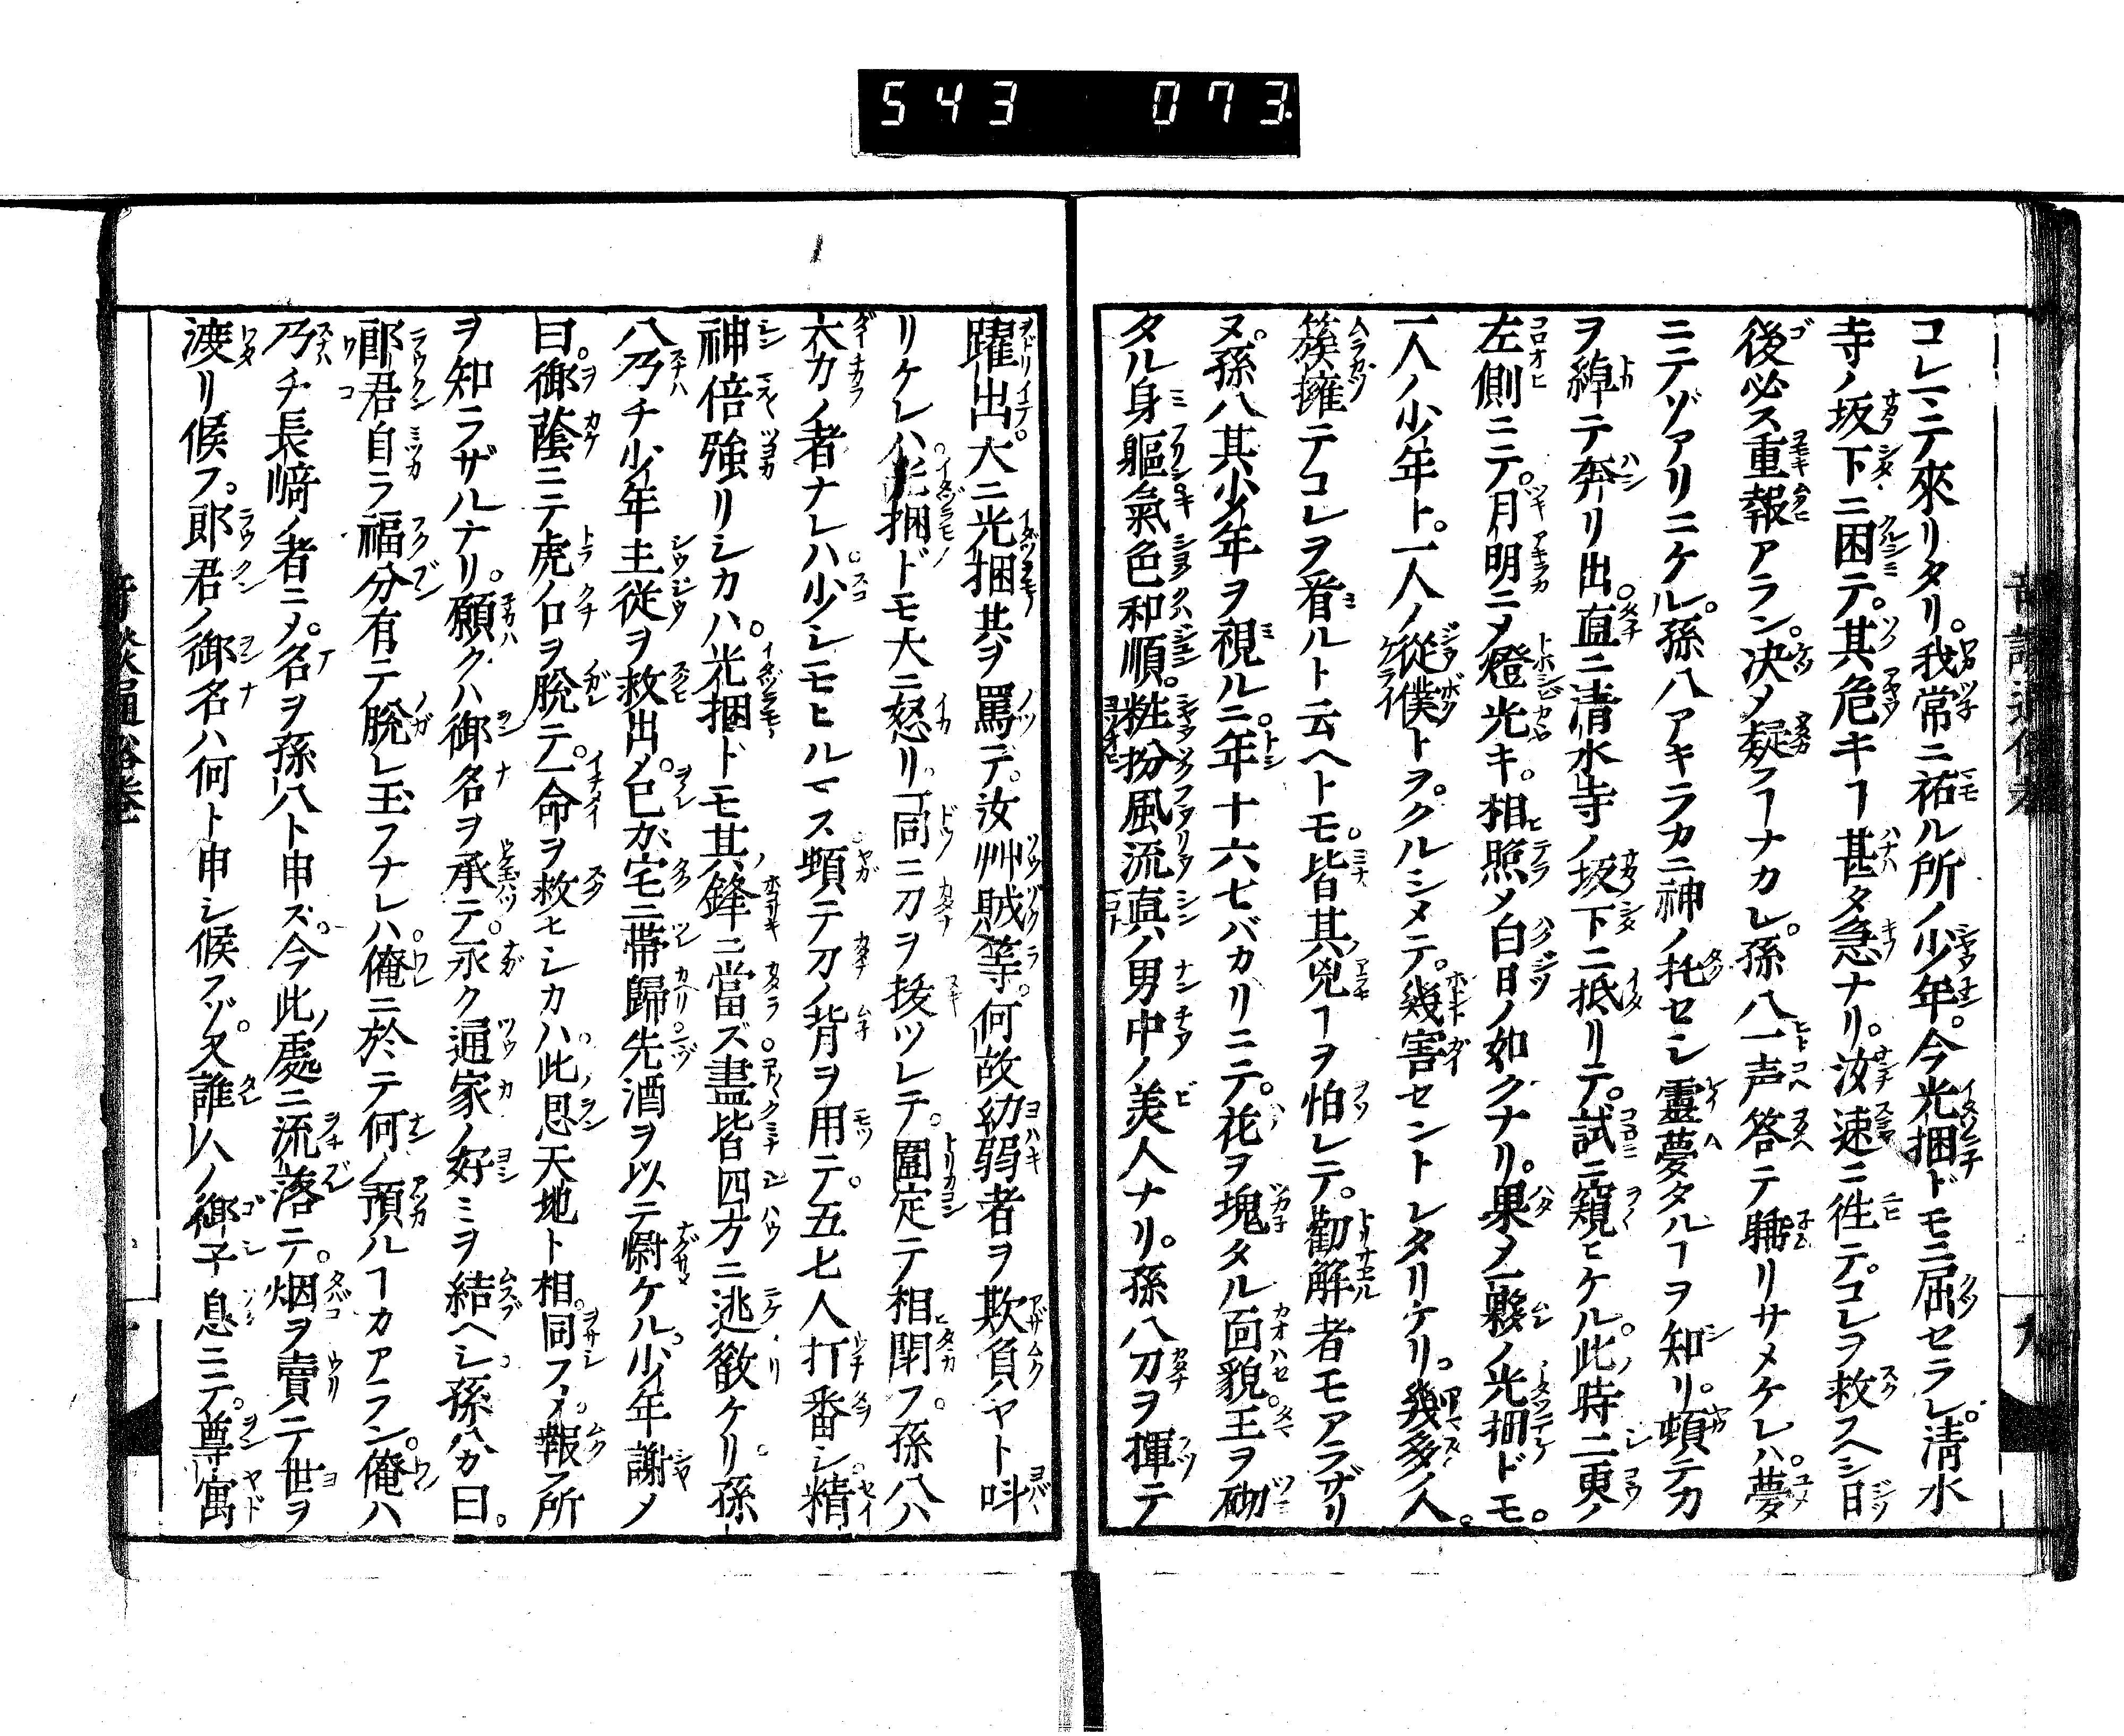 543 073
コレニテ來リタリ。我常ニ祐ル所ノ少年。今光捆ドモニ屈セラレ。清水
寺ノ坂下ニ困テ。其危キヿ甚タ急ナリ。汝速ニ徃テコレヲ救スヘシ日
後必ス重報アラン。决メ疑フヿナカレ。孫八一声答テ睡リサメケレハ夢
ニテゾアリニケル。孫八アキラカニ神ノ托セシ靈夢タルヿヲ知リ。頓テカ
ヲ綽テ奔リ出。直ニ清水寺ノ坂下ニ抵リテ。試ニ窺ヒケル。此時二更ノ
左側ニテ。月明ニメ燈光キ。相照メ白日ノ如クナリ。果メ一夥ノ光捆ドモ。
一人ノ少年ト。一人ノ從僕トヲ。クルシメテ。幾害セントレタリケリ。幾多ノ人。
簇擁テコレヲ着ルト云ヘトモ。皆其兇ヿヲ怕レテ。勸解者モアラザリ
ヌ。孫八其少年ヲ視ルニ。年十六七バカリニテ。花ヲ塊タル面貌。玉ヲ砌
タル身軀氣色和順。粧扮風流真ノ男中ノ美人ナリ。孫八刀ヲ揮テ
躍出。大ニ光捆其ヲ罵テ。汝艸賊等。何故幼弱者ヲ欺負ヤト呌
リケレハ。光捆ドモ大ニ怒リ。一同ニ刀ヲ拔ツレテ。圍定テ相閗フ。孫八ハ
大カノ者ナレハ。少シモヒルマス。頓テ刀ノ背ヲ用テ。五七人打番シ。精
神倍強リシカハ。光捆ドモ其鋒ニ當ズ。盡皆四方ニ逃散ケリ。孫
八乃チ少年主従ヲ救出メ。已ガ宅ニ帶歸。先酒ヲ以テ慰ケル。少年謝メ
曰。御蔭ニテ虎ノ口ヲ脫テ。一命ヲ救ヒシカハ。此恩天地ト相同フメ。報フ所
ヲ知ラザルナリ。願クハ御名ヲ承テ。永ク通家ノ好ミヲ結ヘシ。孫八カ曰。
郎君自ラ福分有テ脫レ玉フナレハ。俺ニ於テ何ノ預ルヿカアラン。俺ハ
乃チ長﨑ノ者ニメ。名ヲ孫八ト申ズ。今此ノ處ニ流落テ。烟ヲ賣テ世ヲ
渡リ候フ。郎君ノ御名ハ何ト申シ候フゾ。又誰人ノ御子息ニテ。尊寓
九